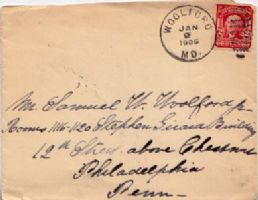 WOOLFORD
JAN
9
1905
MD.
Mr Samuel W. Woolford Jr
Rooms 1116-1120 Stephen Girard Building
12th Street above Chestnut
Philadelphia
Penn-